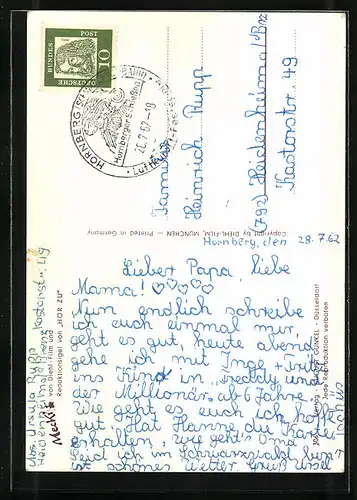 10
DEUTSCHE
BUNDES
POST
HORNBERG
Hornberger Schießen
26.7.62-18
Luftkurort
Familie
Heinrich Rupp
(792) Heidenheim a/Brz
Kastorstr. 49
Copyright by DIEHL-FILM, MÜNCHEN — Printed in Germany
Hornberg, den 28.7.62
Lieber Papa, liebe
Mama!
Nun endlich schreibe
ich euch einmal mir
geht es gut, heute abend
gehe ich mit Inge + Trüdi
ins Kino in „Freddy und
der Millionär" ab 6 Jahre.
Wie geht es euch ich hoffe
gut. Hat Hanne die Karte
erhalten, Wie geht's Oma
seid ich im Schwarzwald bin
ist schönes Wetter. Gruß Ursel
Abs. Ursula
Heidenheim/Brenz Kastorstr. 49
Mecki
von Diehl-Film und
Redaktionsigel von „HÖR ZU"
Verlag AUGUST GUNKEL · Düsseldorf
Jede Reproduktion verboten